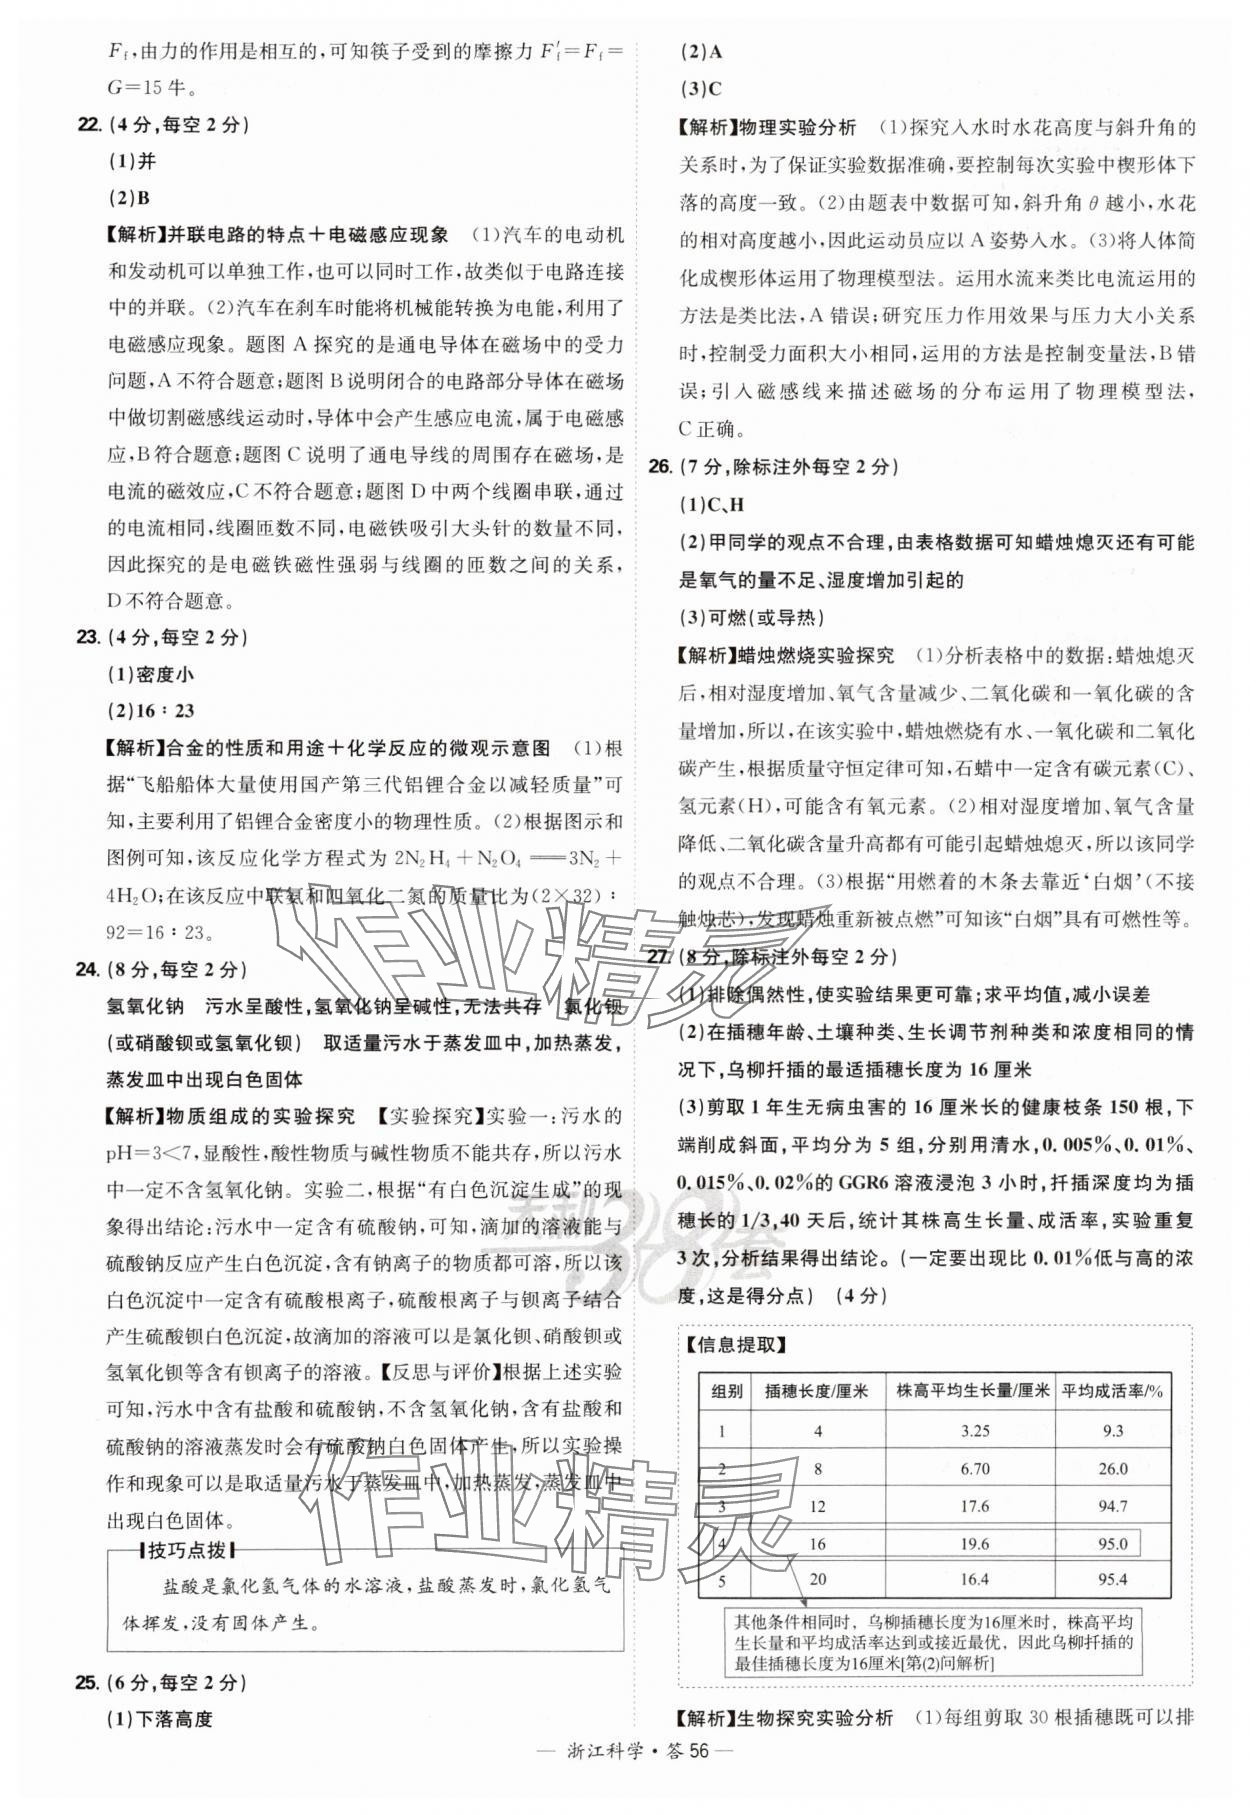 F_f,由力的作用是相互的,可知筷子受到的摩擦力 F′_f=F_f=
G=15 牛。
22. (4 分,每空 2 分)
(1)并
(2)B
【解析】并联电路的特点+电磁感应现象 (1)汽车的电动机
和发动机可以单独工作,也可以同时工作,故类似于电路连接
中的并联。(2)汽车在刹车时能将机械能转换为电能,利用了
电磁感应现象。题图 A 探究的是通电导体在磁场中的受力
问题,A 不符合题意;题图 B 说明闭合的电路部分导体在磁场
中做切割磁感线运动时,导体中会产生感应电流,属于电磁感
应,B 符合题意;题图 C 说明了通电导线的周围存在磁场,是
电流的磁效应,C 不符合题意;题图 D 中两个线圈串联,通过
的电流相同,线圈匝数不同,电磁铁吸引大头针的数量不同,
因此探究的是电磁铁磁性强弱与线圈的匝数之间的关系,
D 不符合题意。
23. (4 分,每空 2 分)
(1)密度小
(2)16∶23
【解析】合金的性质和用途+化学反应的微观示意图 (1)根
据“飞船船体大量使用国产第三代铝锂合金以减轻质量”可
知,主要利用了铝锂合金密度小的物理性质。(2)根据图示和
图例可知,该反应化学方程式为 2N₂H₄+N₂O₄══3N₂+
4H₂O;在该反应中联氨和四氧化二氮的质量比为(2×32)∶
92=16∶23。
24. (8 分,每空 2 分)
氢氧化钠 污水呈酸性,氢氧化钠呈碱性,无法共存 氯化钡
(或硝酸钡或氢氧化钡) 取适量污水于蒸发皿中,加热蒸发,
蒸发皿中出现白色固体
【解析】物质组成的实验探究 【实验探究】实验一:污水的
pH=3<7,显酸性,酸性物质与碱性物质不能共存,所以污水
中一定不含氢氧化钠。实验二,根据“有白色沉淀生成”的现
象得出结论:污水中一定含有硫酸钠,可知,滴加的溶液能与
硫酸钠反应产生白色沉淀,含有钠离子的物质都可溶,所以该
白色沉淀中一定含有硫酸根离子,硫酸根离子与钡离子结合
产生硫酸钡白色沉淀,故滴加的溶液可以是氯化钡、硝酸钡或
氢氧化钡等含有钡离子的溶液。【反思与评价】根据上述实验
可知,污水中含有盐酸和硫酸钠,不含氢氧化钠,含有盐酸和
硫酸钠的溶液蒸发时会有硫酸钠白色固体产生,所以实验操
作和现象可以是取适量污水于蒸发皿中,加热蒸发,蒸发皿中
出现白色固体。
技巧点拨
盐酸是氯化氢气体的水溶液,盐酸蒸发时,氯化氢气
体挥发,没有固体产生。
25. (6 分,每空 2 分)
(1)下落高度
(2)A
(3)C
【解析】物理实验分析 (1)探究入水时水花高度与斜升角的
关系时,为了保证实验数据准确,要控制每次实验中楔形体下
落的高度一致。(2)由题表中数据可知,斜升角 θ 越小,水花
的相对高度越小,因此运动员应以 A 姿势入水。(3)将人体简
化成楔形体运用了物理模型法。运用水流来类比电流运用的
方法是类比法,A 错误;研究压力作用效果与压力大小关系
时,控制受力面积大小相同,运用的方法是控制变量法,B 错
误;引入磁感线来描述磁场的分布运用了物理模型法,
C 正确。
26. (7 分,除标注外每空 2 分)
(1)C、H
(2)甲同学的观点不合理,由表格数据可知蜡烛熄灭还有可能
是氧气的量不足、湿度增加引起的
(3)可燃(或导热)
【解析】蜡烛燃烧实验探究 (1)分析表格中的数据:蜡烛熄灭
后,相对湿度增加、氧气含量减少、二氧化碳和一氧化碳的含
量增加,所以,在该实验中,蜡烛燃烧有水、一氧化碳和二氧化
碳产生,根据质量守恒定律可知,石蜡中一定含有碳元素(C)、
氢元素(H),可能含有氧元素。(2)相对湿度增加、氧气含量
降低、二氧化碳含量升高都有可能引起蜡烛熄灭,所以该同学
的观点不合理。(3)根据“用燃着的木条去靠近‘白烟’(不接
触烛芯),发现蜡烛重新被点燃”可知该“白烟”具有可燃性等。
27. (8 分,除标注外每空 2 分)
(1)排除偶然性,使实验结果更可靠;求平均值,减小误差
(2)在插穗年龄、土壤种类、生长调节剂种类和浓度相同的情
况下,乌柳扦插的最适插穗长度为 16 厘米
(3)剪取 1 年生无病虫害的 16 厘米长的健康枝条 150 根,下
端削成斜面,平均分为 5 组,分别用清水,0.005%、0.01%、
0.015%、0.02%的 GGR6 溶液浸泡 3 小时,扦插深度均为插
穗长的 1/3,40 天后,统计其株高生长量、成活率,实验重复
3 次,分析结果得出结论。(一定要出现比 0.01%低与高的浓
度,这是得分点) (4 分)
【信息提取】
组别 插穗长度/厘米 株高平均生长量/厘米 平均成活率/%
1 4 3.25 9.3
2 8 6.70 26.0
3 12 17.6 94.7
4 16 19.6 95.0
5 20 16.4 95.4
其他条件相同时,乌柳插穗长度为16厘米时,株高平均
生长量和平均成活率达到或接近最优,因此乌柳扦插的
最佳插穗长度为16厘米[第(2)问解析]
【解析】生物探究实验分析 (1)每组剪取 30 根插穗既可以排
— 浙江科学·答 56 —
作业精灵
天利38套
作业精灵